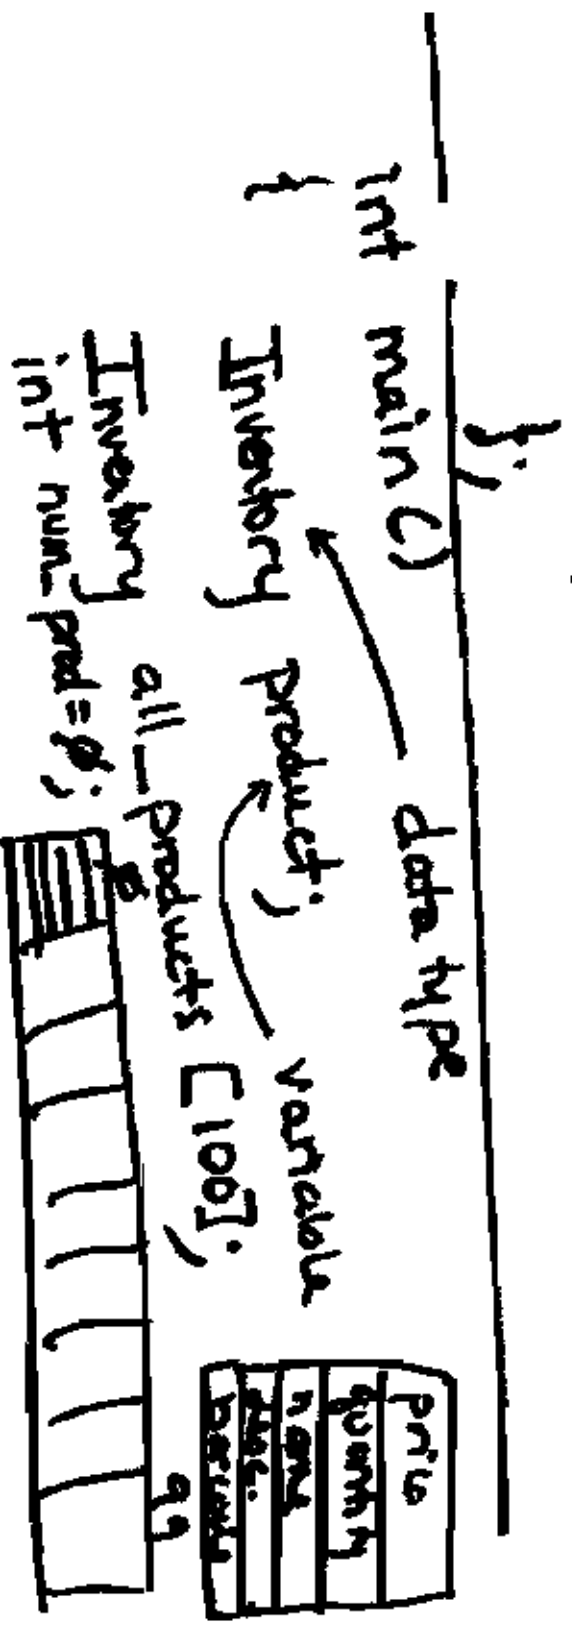 };
int main()
{
data type
Inventory product;
variable
Inventory all_products [100];
int num_prod = 0;
0
99
price
quantity
name
desc.
barcode